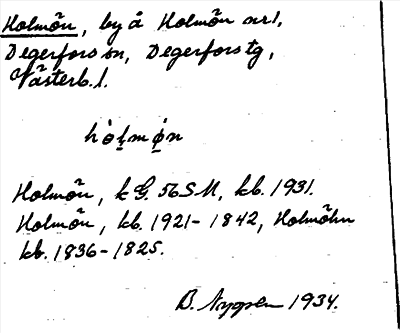 Holmön, by å Holmön nr 1,
Degerfors sn, Degerfors tg,
Västerb. l.
hòl̥mø̣n
Holmön, k G. 56 SM, kb. 1931.
Holmön, kb. 1921-1842, Holmöhn
kb. 1836-1825.
B. Nygren 1934.